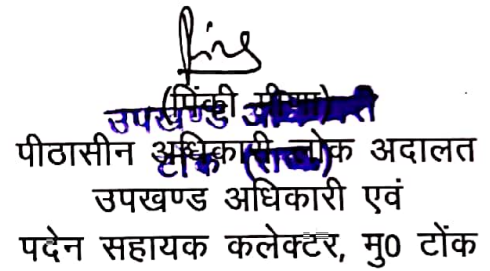 (पिंकी मीणा)
उपखण्ड अधिकारी
पीठासीन अधिकारी लोक अदालत
टोंक (राज०)
उपखण्ड अधिकारी एवं
पदेन सहायक कलेक्टर, मु0 टोंक